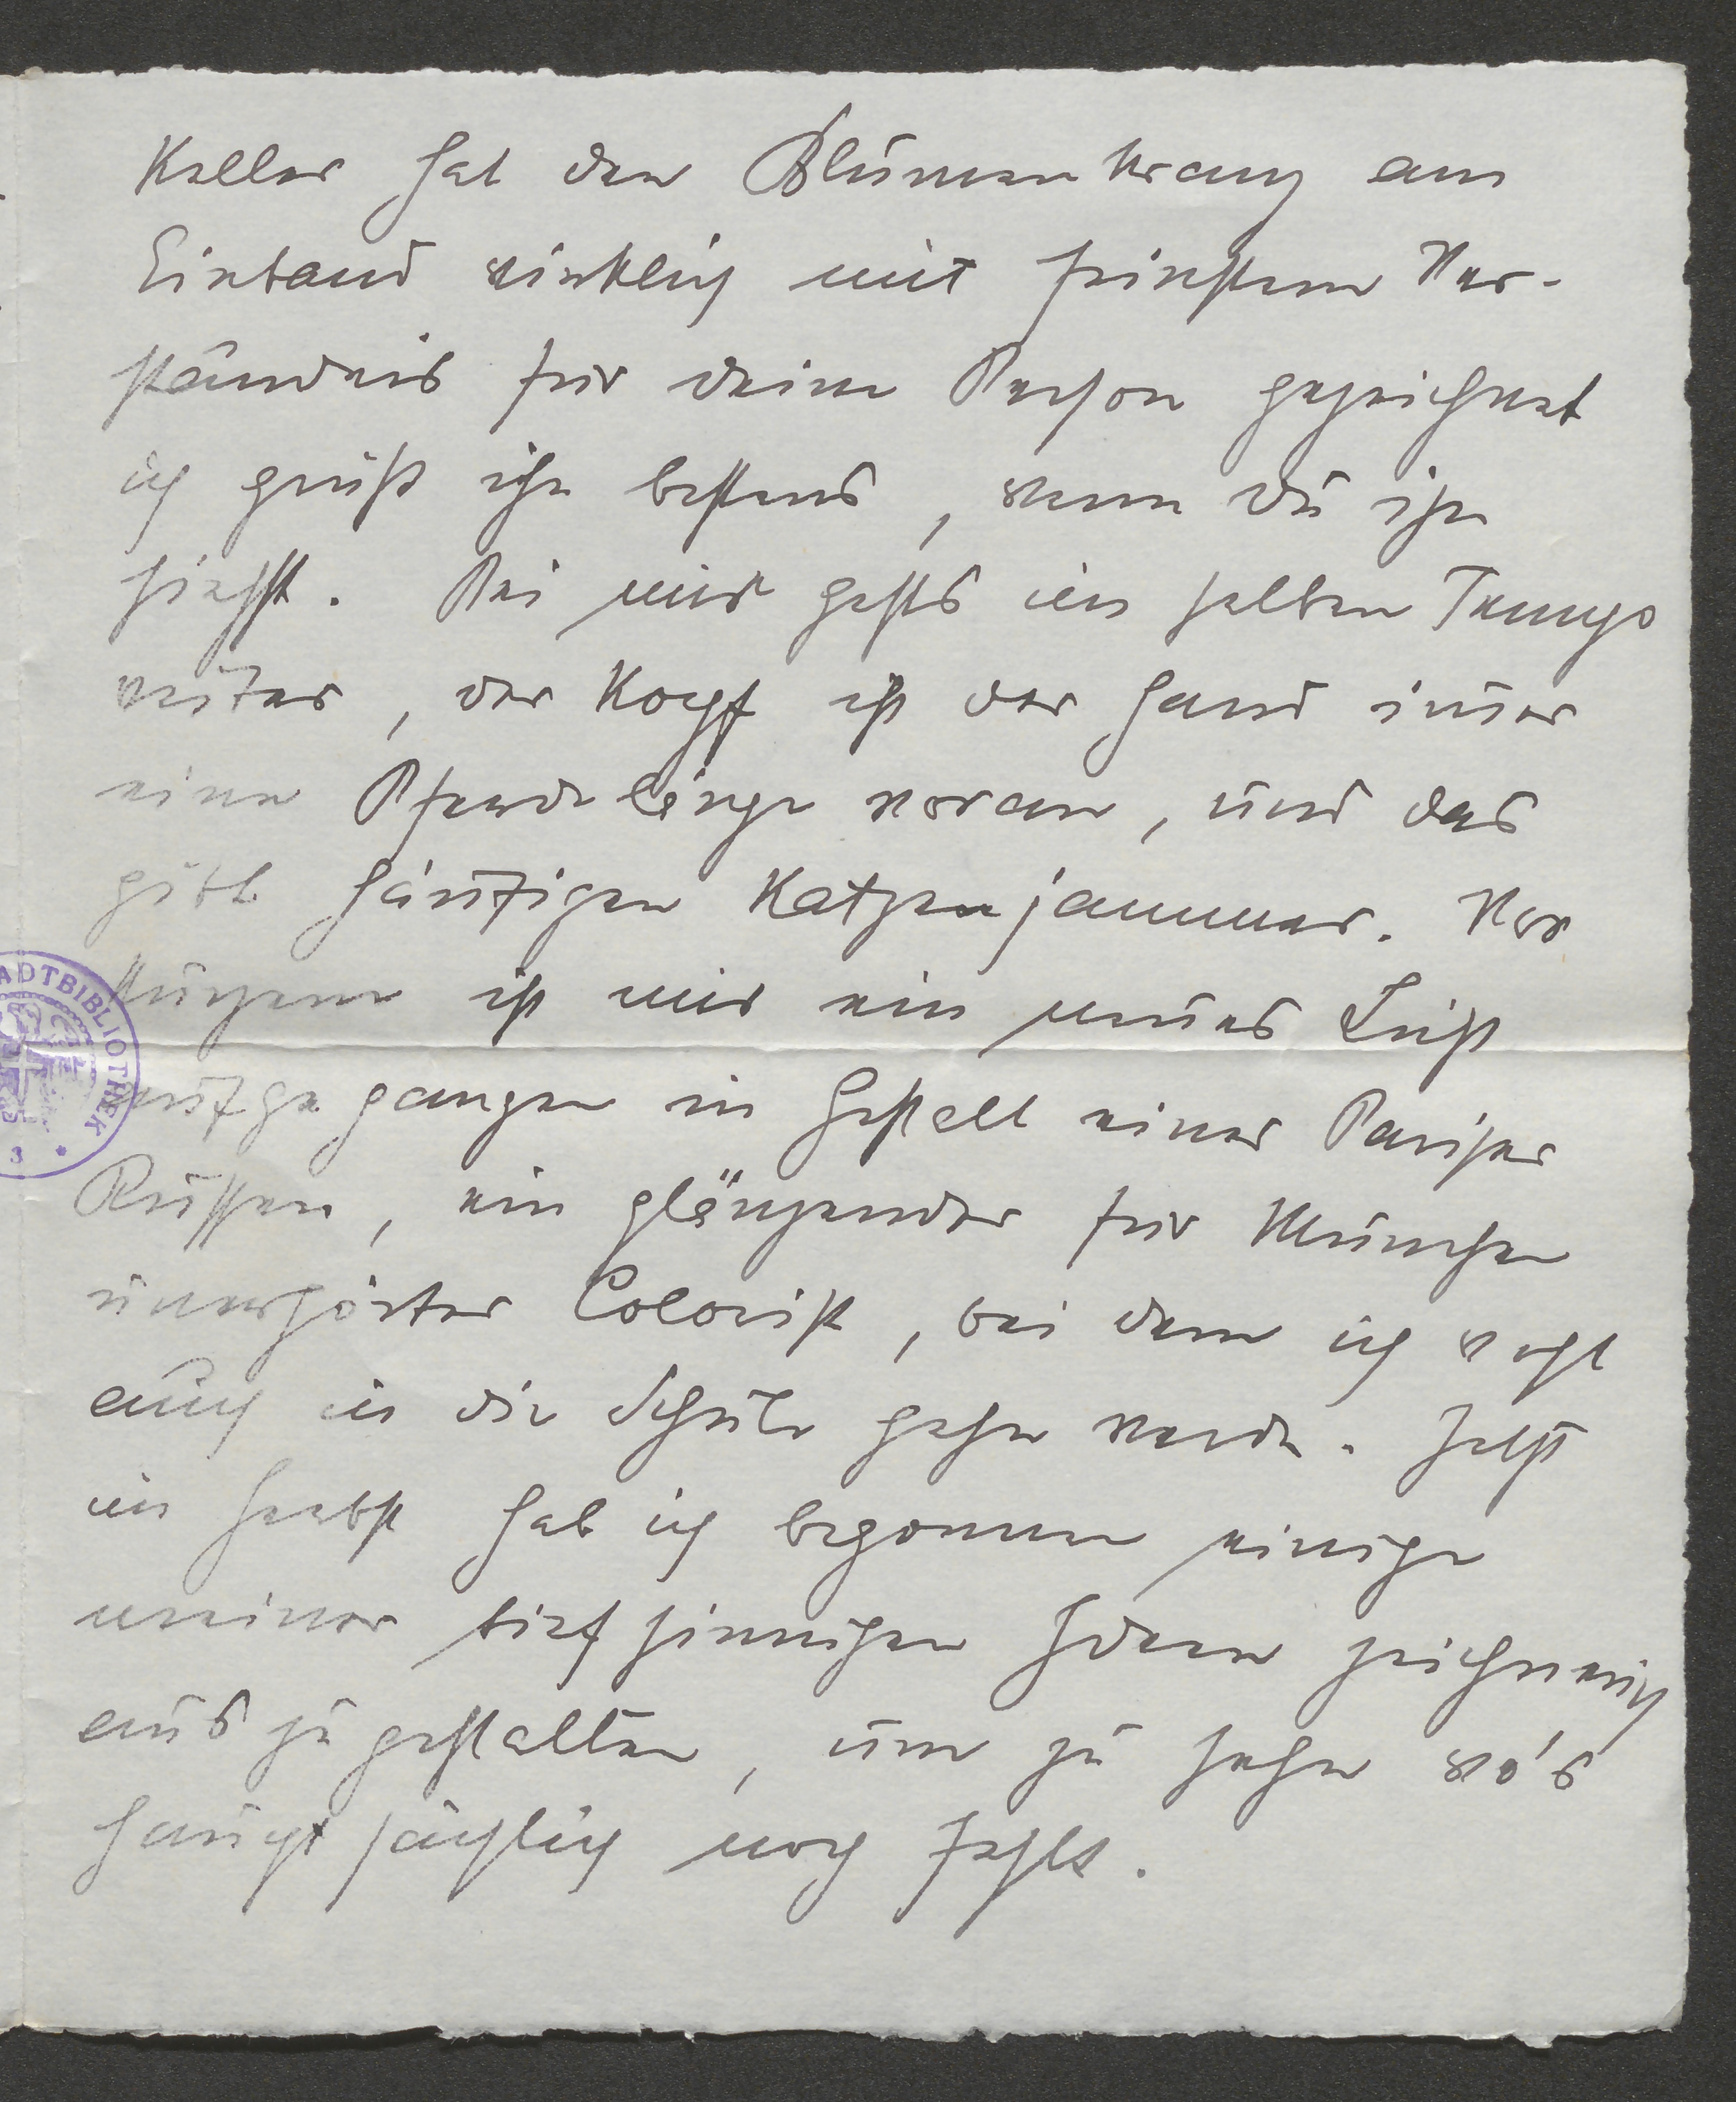 Keller hat den Blumenkranz am
Einband wirklich mit feinstem Ver-
ständnis für deine Person gezeichnet
ich grüß ihn bestens, wenn du ihn
siehst. Bei mir gehts im selben Tempo
weiter, der Kopf ist der Hand im̅er
eine Pferdelänge voran, und das
gibt häufigen Katzenjammer. Vor
kurzem ist mir ein neues Licht
aufgegangen in Gestalt eines Pariser
Russen, ein glänzender für München
unerhörter Colorist, bei dem ich wohl
auch in die Schule gehen werde. Jetzt
im Herbst hab ich begonnen einige
meiner tiefsinnigen Ideen zeichnerisch
auszugestalten, um zu sehen wo's
hauptsächlich noch fehlt.
STADTBIBLIOTHEK
3 *